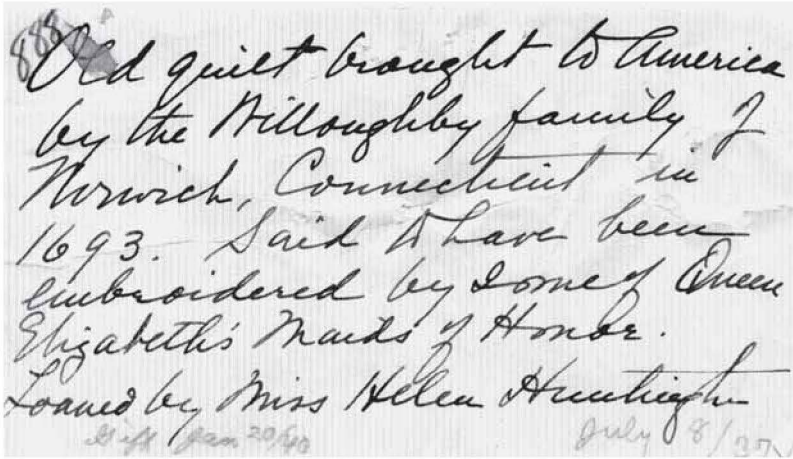 888
Old quilt brought to America
by the Willoughby family of
Norwich, Connecticut in
1693. Said to have been
embroidered by some of Queen
Elizabeth's Maids of Honor.
Loaned by Miss Helen Huntington
Gift Jan 20/40 July 8/37